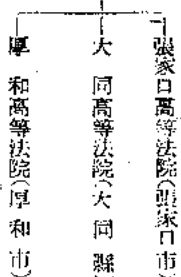 張家口高等法院(張家口市)
大同高等法院(大同縣)
厚和高等法院(厚和市)